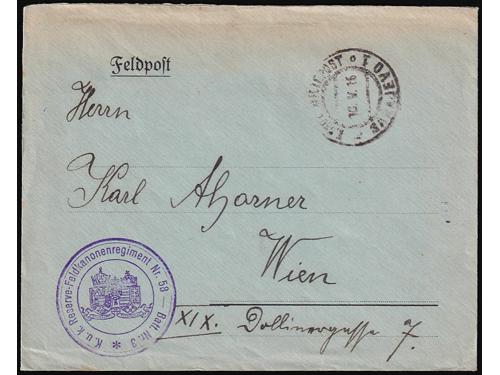 Feldpost
SARAJEVO 1
10. V. 16
Herrn
Karl Ahorner
Wien
K. u. k. Reserve-Feldkanonenregiment Nr. 58 — Batt. Nr. 3 *
XIX. Dollinergasse 7.